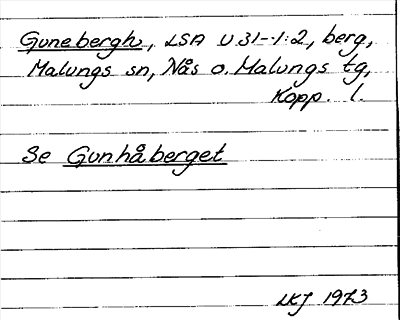 Gunebergh, LSA U 31-1:2, berg,
Malungs sn, Nås o. Malungs tg,
Kopp. l.
Se Gunhåberget
LKJ 1973